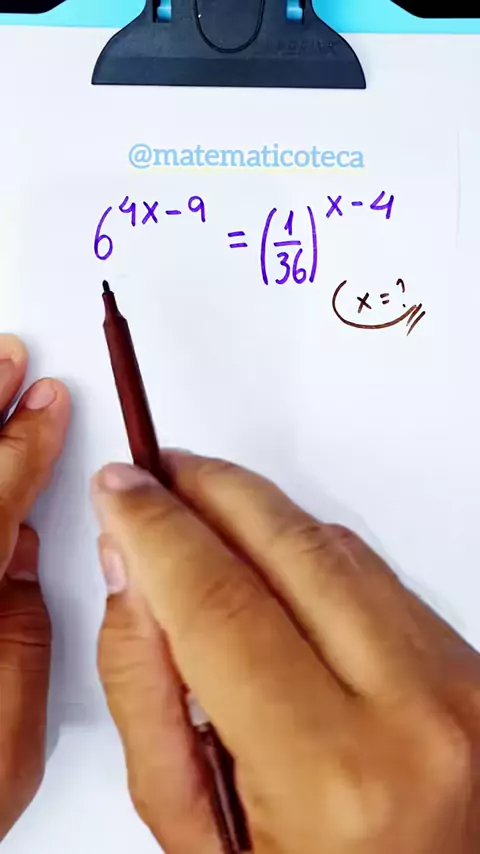 @matematicoteca
6^{4x-9} = (1/36)^{x-4}
x = ?